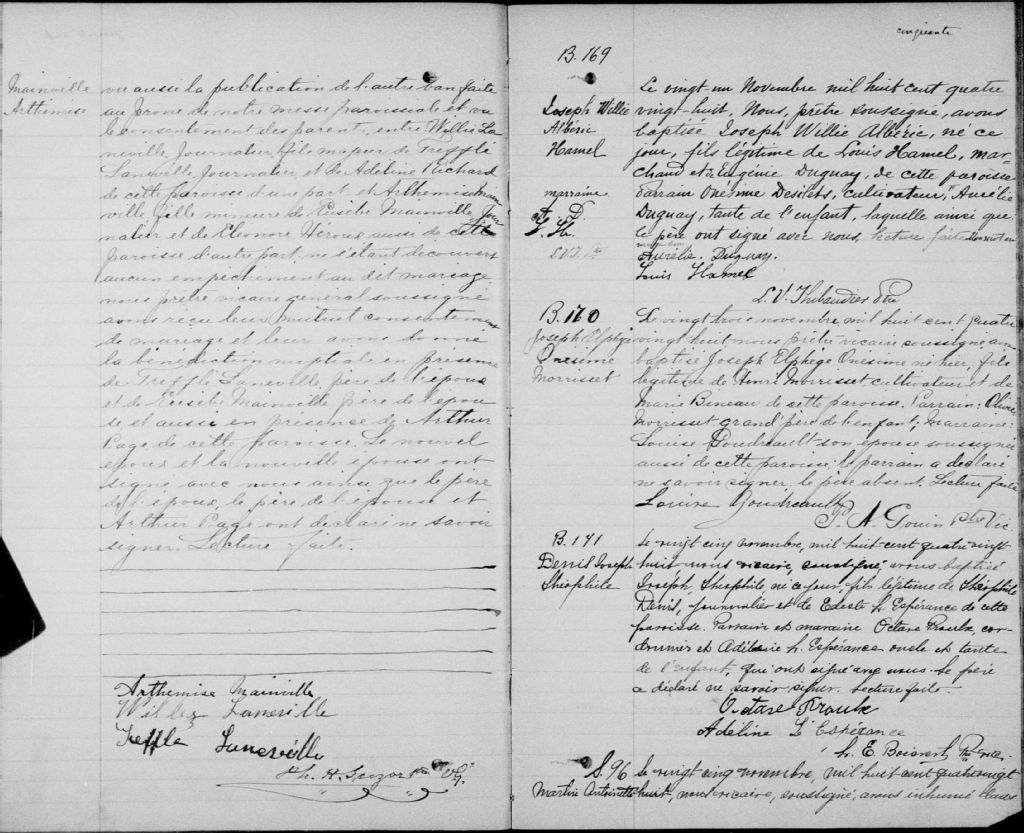 Mainville
Arthemise
vu aussi la publication de l'autre ban faite
au prone de notre messe paroissiale et vu
le consentement des parent, entre Willie La
neville Journalier, fils majeur de Treffle
Laneville Journalier et de Adeline Richard
de cette paroisse d'un part et Arthemise Main
ville fille mineure de Eusèbe Mainville Jour
nalier et de Eleonore Heroux aussi de cette
paroisse d'autre part, ne s'étant découvert
aucun empêchement au dit mariage
nous prêtre vicaire général soussigné
avons reçu leur mutuel consentement
de mariage et leur avons donné
la bénédiction nuptiale en présence
de Treffle Laneville, père de l'époux
et de Eusèbe Mainville père de l'épou
se et aussi en présence de Arthur
Page de cette paroisse. Le nouvel
époux et la nouvelle épouse ont
signé avec nous ainsi que le père
de l'époux, le père de l'épouse et
Arthur Page ont déclaré ne savoir
signer. Lecture faite.
Arthemise Mainville
Willez Laneville
Treffle Lanevélle
cinquante
B. 169
Joseph Willie
Albéric
Hamel
marraine
Le vingt un Novembre mil huit cent quatre
vingt-huit, Nous, prêtre soussigné, avons
baptisé Joseph Willie Albéric, né ce
jour, fils légitime de Louis Hamel, mar-
chand et d'Eugénie Duguay, de cette paroisse
Parrain Onésime Desilets, cultivateur, Aurélie
Duguay, tante de l'enfant, laquelle ainsi que
le père ont signé avec nous, lecture faite
Aurélie. Duguay.
Louis Hamel
L. V. Thibaudier Ptre
B. 170
Joseph Elphège
Onesime
Morrisset
Le vingt trois novembre, mil huit cent quatre
vingt huit nous prêtre vicaire soussigné avons
baptisé Joseph Elphège Onesime né hier, fils
légitime de Henri Morrisset cultivateur et de
Marie Bineau de cette paroisse. Parrain: Olivier
Morrisset grand'père de l'enfant; Marraine:
Louise Boudreault son épouse soussignée
aussi de cette paroisse; le parrain a déclaré
ne savoir signer. le père absent. Lecture faite
Louise Boudreault
J. A. Gouin Ptre Vic
B. 171
Denil Joseph
Théophile
Le vingt cinq novembre, mil huit-cent quatre vingt
huit nous vicaire, soussigné, avons baptisé
Joseph, Théophile né ce jour, fils légitime de Théophile
Denil, journalier et de Edeste L'Espérance de cette
paroisse. Parrain et maraine Octave Proulx, cor-
donnier et Adéline L'Espérance oncle et tante
de l'enfant, qui ont signé avec nous. Le père
a déclaré ne savoir signer. Lecture faite.
Octave Proulx
Adéline L'Espérance
L. E. Boisvert Ptre vic.
S. 96
Martin Antoinette
Le vingt cinq novembre, mil huit cent quatrevingt
huit, nous vicaire, soussigné, avons inhumé dans